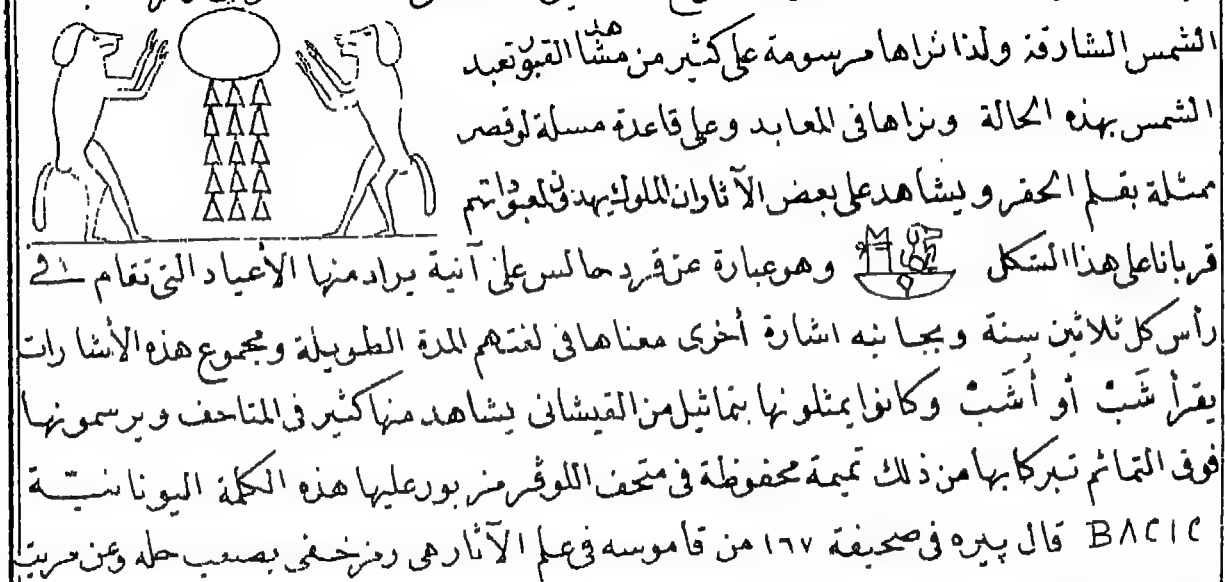 الشمس الشارقة ولذا نراها مرسومة على كثير من مشاهد القبور تعبد
الشمس بهذه الحالة ونراها في المعابد وعلى قاعدة مسلة لوقصر
ممثلة بقلم الحفر ويشاهد على بعض الآثار ان الملوك يهدون لمعبوداتهم
قربانا على هذا الشكل وهو عبارة عن قرد جالس على آنية يراد منها الأعياد التي تقام في
رأس كل ثلاثين سنة وبجانبه اشارة أخرى معناها في لغتهم المدة الطويلة ومجموع هذه الأشارات
يقرأ شَبْ أو أُشَبْ وكانوا يمثلونها بتماثيل من القيشاني يشاهد منها كثير في المتاحف ويرسمونها
فوق التمائم تبركا بها من ذلك تميمة محفوظة في متحف اللوڤر مزبور عليها هذه الكلمة اليونانيـــة
BACIC قال پيره في صحيفة ١٦٧ من قاموسه في علم الآثار هي رمز خفي يصعب حله وعن مريت